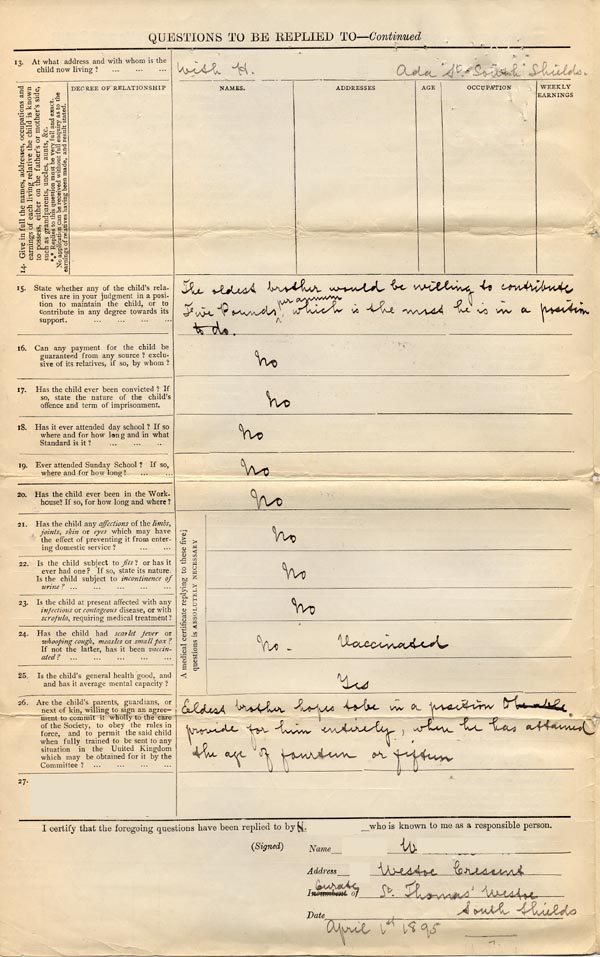 QUESTIONS TO BE REPLIED TO—Continued
13. At what address and with whom is the
child now living? ... ... ...
With H. Ada St. South Shields.
14. Give in full the names, addresses, occupations and
earnings of each living relative the child is known
to possess, either on the father's or mother's side,
such as grandparents, uncles, aunts, &c.
*** Replies to this question must be very full and exact.
No application can be received without full enquiry as to the
earnings of relatives having been made, and result stated.
DEGREE OF RELATIONSHIP NAMES. ADDRESSES AGE OCCUPATION WEEKLY
EARNINGS
15. State whether any of the child's rela-
tives are in your judgment in a posi-
tion to maintain the child, or to
contribute in any degree towards its
support. ... ... ... ...
The oldest brother would be willing to contribute
Five Pounds per annum which is the most he is in a position
to do.
16. Can any payment for the child be
guaranteed from any source? exclu-
sive of its relatives, if so, by whom?
No
17. Has the child ever been convicted? If
so, state the nature of the child's
offence and term of imprisonment.
No
18. Has it ever attended day school? If so
where and for how long and in what
Standard is it? ... ... ...
No
19. Ever attended Sunday School? If so,
where and for how long? ... ...
No
20. Has the child ever been in the Work-
house? If so, for how long and where?
No
A medical certificate replying to these five
questions is ABSOLUTELY NECESSARY
21. Has the child any affections of the limbs,
joints, skin or eyes which may have
the effect of preventing it from enter-
ing domestic service? ... ...
No
22. Is the child subject to fits? or has it
ever had one? If so, state its nature.
Is the child subject to incontinence of
urine? ... ... ... ...
No
23. Is the child at present affected with any
infectious or contagious disease, or with
scrofula, requiring medical treatment?
No
24. Has the child had scarlet fever or
whooping cough, measles or small pox?
If not the latter, has it been vaccin-
ated? ... ... ... ...
No - Vaccinated
25. Is the child's general health good, and
and has it average mental capacity?
Yes
26. Are the child's parents, guardians, or
next of kin, willing to sign an agree-
ment to commit it wholly to the care
of the Society, to obey the rules in
force, and to permit the said child
when fully trained to be sent to any
situation in the United Kingdom
which may be obtained for it by the
Committee? ... ... ... ...
Eldest brother hopes to be in a position
provide for him entirely, when he has attained
the age of fourteen or fifteen
27.
I certify that the foregoing questions have been replied to by H. who is known to me as a responsible person.
(Signed) Name W
Address Westoe Crescent
Curate
Incumbent of St. Thomas' Westoe
South Shields
Date April 1st 1895